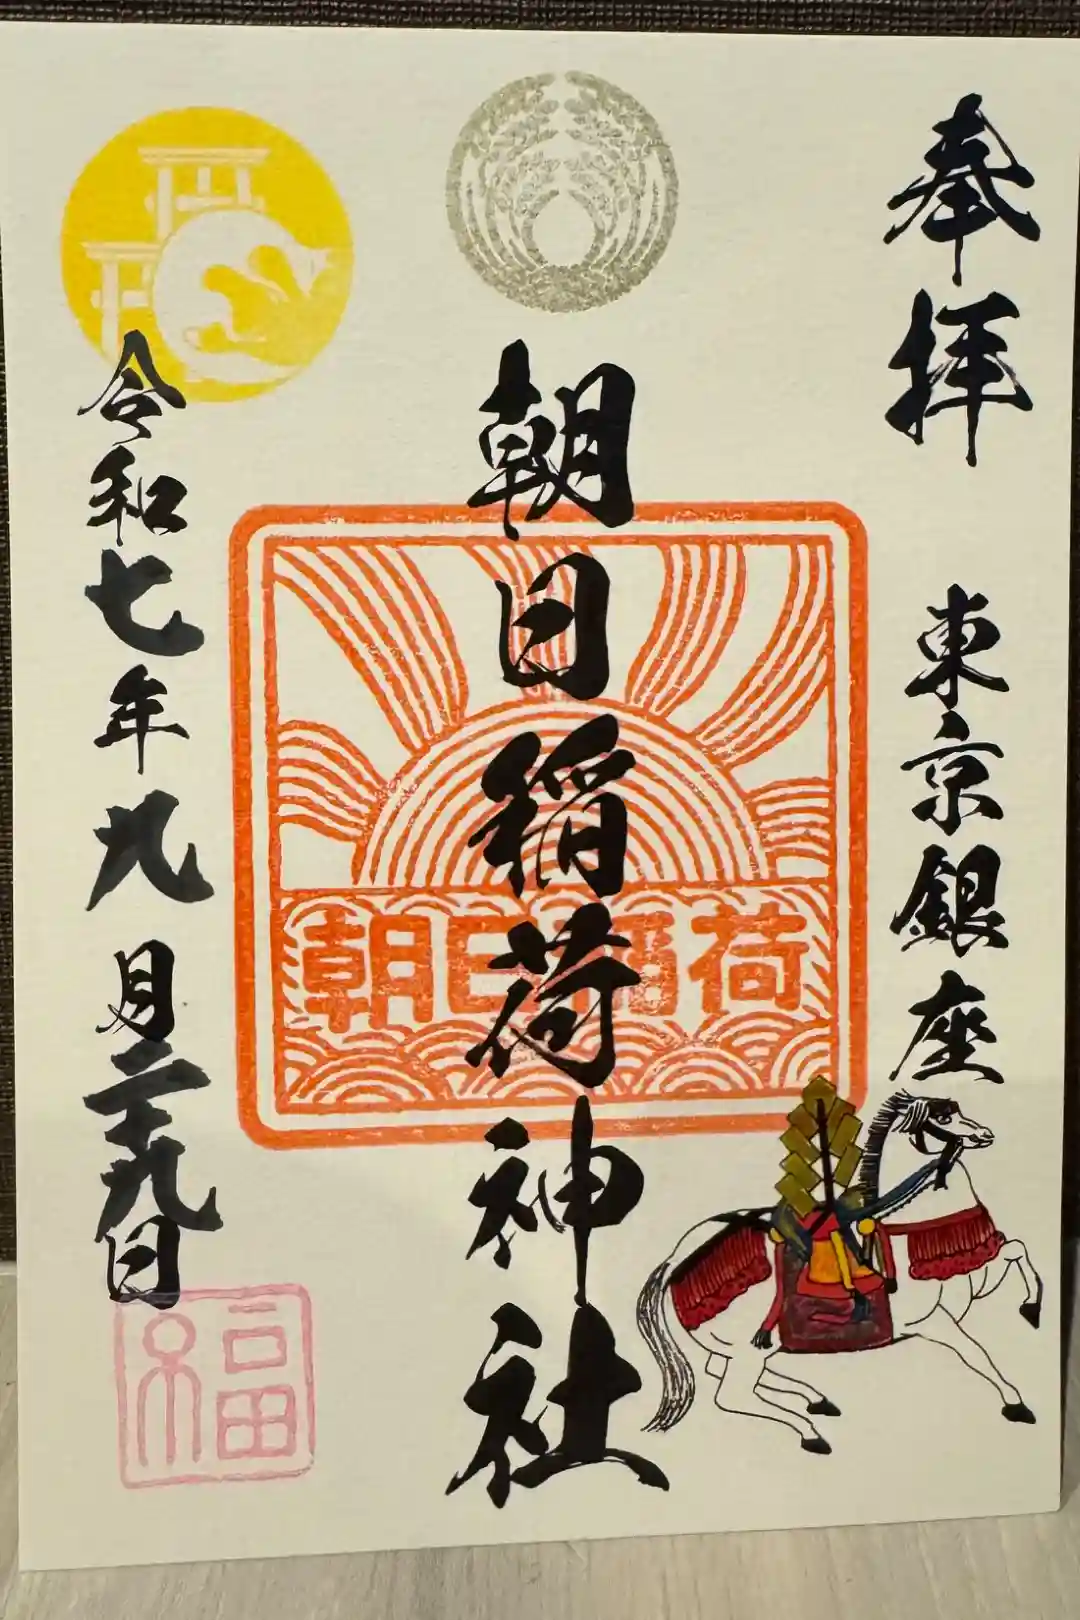 奉拝
東京銀座
朝日稲荷神社
朝日稲荷
令和七年九月二十九日
福